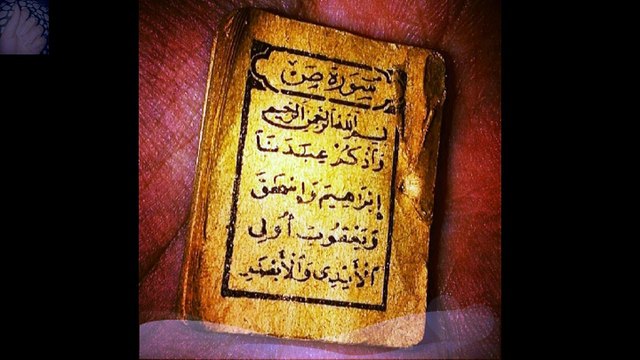 سورة ص
بسم الله الرحمن الرحيم
وَاذْكُرْ عِبَدَنَا
إِبْرَاهِيمَ وَإِسْحَقَ
وَيَعْقُوبَ أُولِي
الْأَيْدِي وَالْأَبْصَرِ